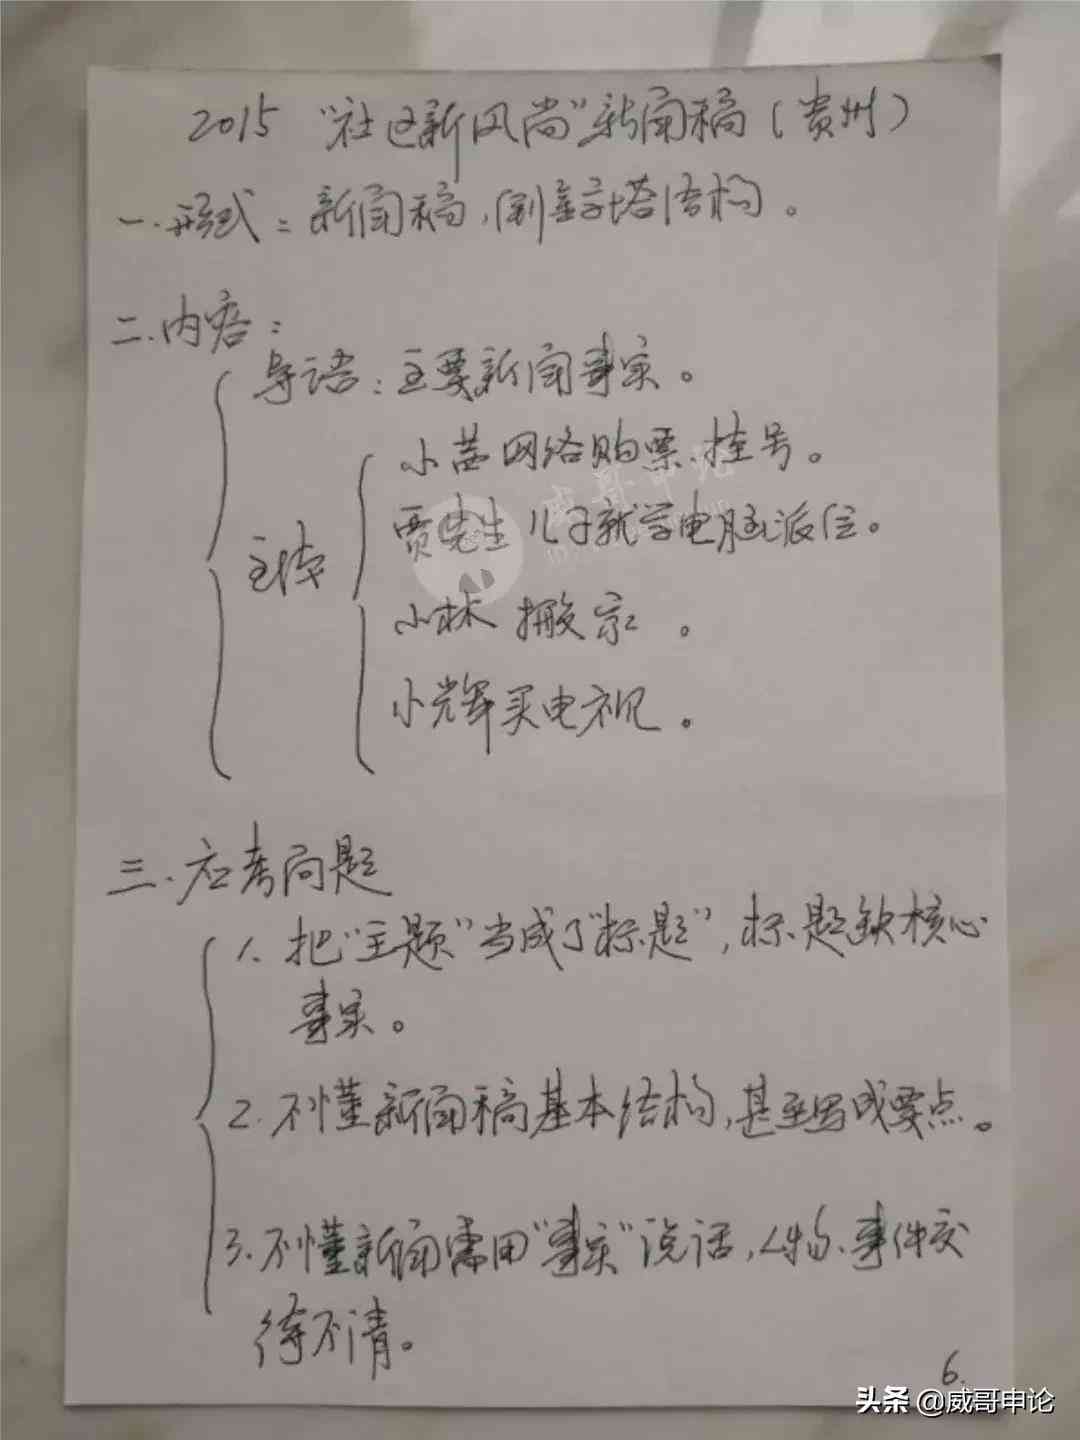 2015 “社区新风尚”新闻稿(贵州)
一.形式:新闻稿,倒金字塔结构。
二.内容:
导语:主要新闻事实。
主体
小茜网络购票.挂号。
贾先生儿子就学电脑派位。
小林搬家。
小辉买电视。
三.应考问题
1.把“主题”当成了“标题”,标题缺核心
事实。
2.不懂新闻稿基本结构,甚至写成要点。
3.不懂新闻需用“事实”说话,人物、事件交
待不清。
6.
威哥申论
头条 @威哥申论